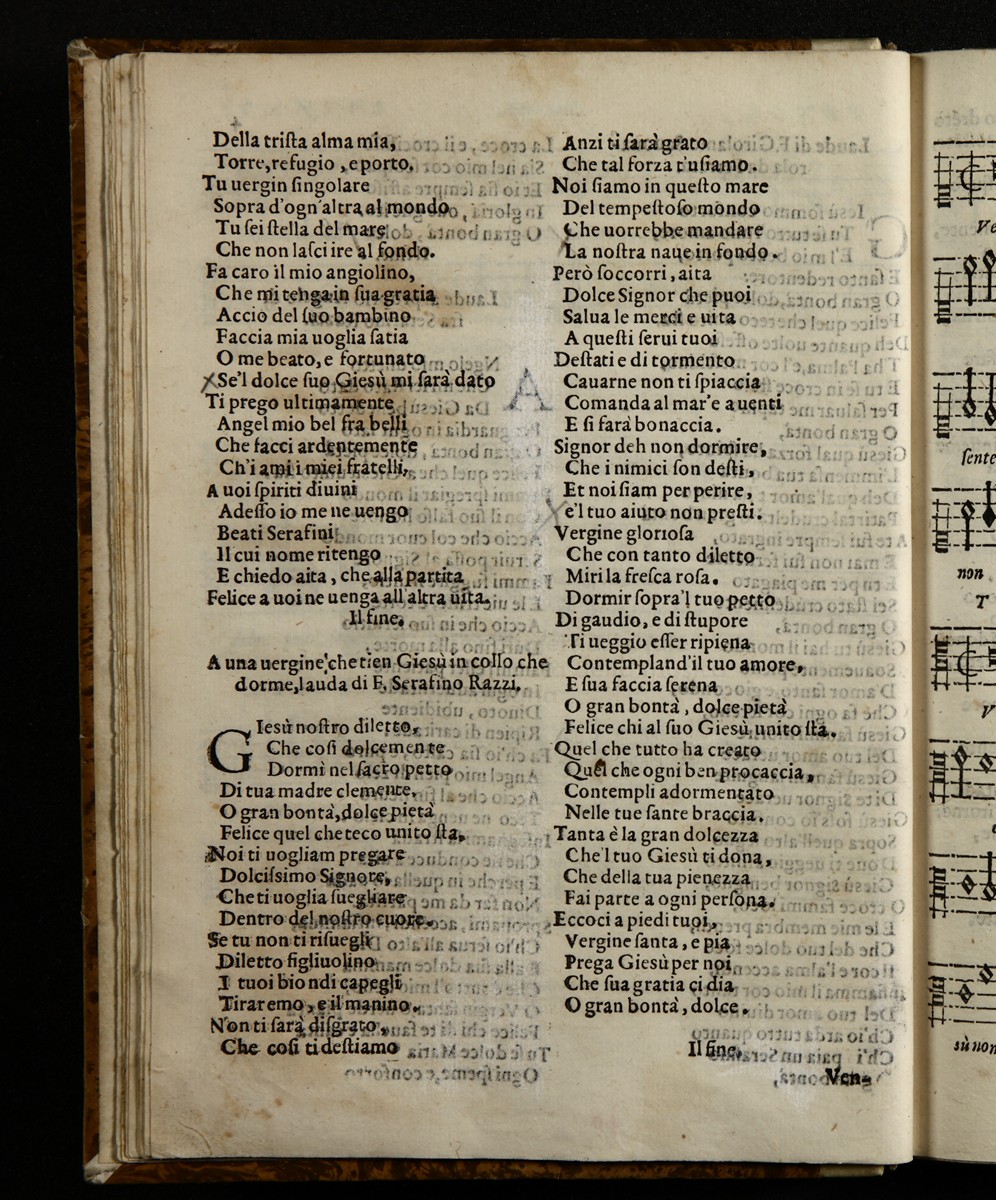 Della triſta alma mia,
Torre, refugio, e porto.
Tu uergin ſingolare
Sopra d'ogn'altra al mondo
Tu ſei ſtella del mare
Che non laſci ire al fondo.
Fa caro il mio angiolino,
Che mi tenga in ſua gratia
Accio del ſuo bambino
Faccia mia uoglia ſatia
O me beato, e fortunato
Se'l dolce ſuo Gieſù mi ſarà dato
Ti prego ultimamente
Angel mio bel fra belli
Che facci ardentemente
Ch'i ami i miei fratelli,
A uoi ſpiriti diuini
Adeſſo io me ne uengo
Beati Serafini
Il cui nome ritengo
E chiedo aita, che alla partita
Felice a uoi ne uenga all'altra uita.
Il fine.
A una uergine, che tien Gieſù in collo che
dorme, lauda di F. Serafino Razzi.
GIesù noſtro diletto,
Che coſi dolcemente
Dormi nel ſacro petto
Di tua madre clemente.
O gran bontà, dolce pietà
Felice quel che teco unito ſta.
Noi ti uogliam pregare
Dolciſsimo Signore,
Che ti uoglia ſuegliare
Dentro del noſtro cuore.
Se tu non ti riſuegli
Diletto figliuolino
I tuoi biondi capegli
Tiraremo, e il manino.
Non ti ſarà diſgrato,
Che coſi ti deſtiamo
Anzi ti ſarà grato
Che tal forza t'uſiamo.
Noi ſiamo in queſto mare
Del tempeſtoſo mondo
Che uorrebbe mandare
La noſtra naue in fondo.
Però ſoccorri, aita
Dolce Signor che puoi
Salua le merci e uita
A queſti ſerui tuoi
Deſtati e di tormento
Cauarne non ti ſpiaccia
Comanda al mar'e a uenti
E ſi farà bonaccia.
Signor deh non dormire,
Che i nimici ſon deſti,
Et noi ſiam per perire,
e'l tuo aiuto non preſti.
Vergine glorioſa
Che con tanto diletto
Miri la freſca roſa.
Dormir ſopra'l tuo petto
Di gaudio, e di ſtupore
Ti ueggio eſſer ripiena
Contempland'il tuo amore,
E ſua faccia ſerena
O gran bontà, dolce pietà
Felice chi al ſuo Gieſù unito ſta.
Quel che tutto ha creato
Quel che ogni ben procaccia,
Contempli adormentato
Nelle tue ſante braccia.
Tanta è la gran dolcezza
Che'l tuo Gieſù ti dona,
Che della tua pienezza
Fai parte a ogni perſona.
Eccoci a piedi tuoi,
Vergine ſanta, e pia
Prega Gieſù per noi
Che ſua gratia ci dia
O gran bontà, dolce.
Il fine.
Ven-
Ve
ſente
non
T
V
sù non